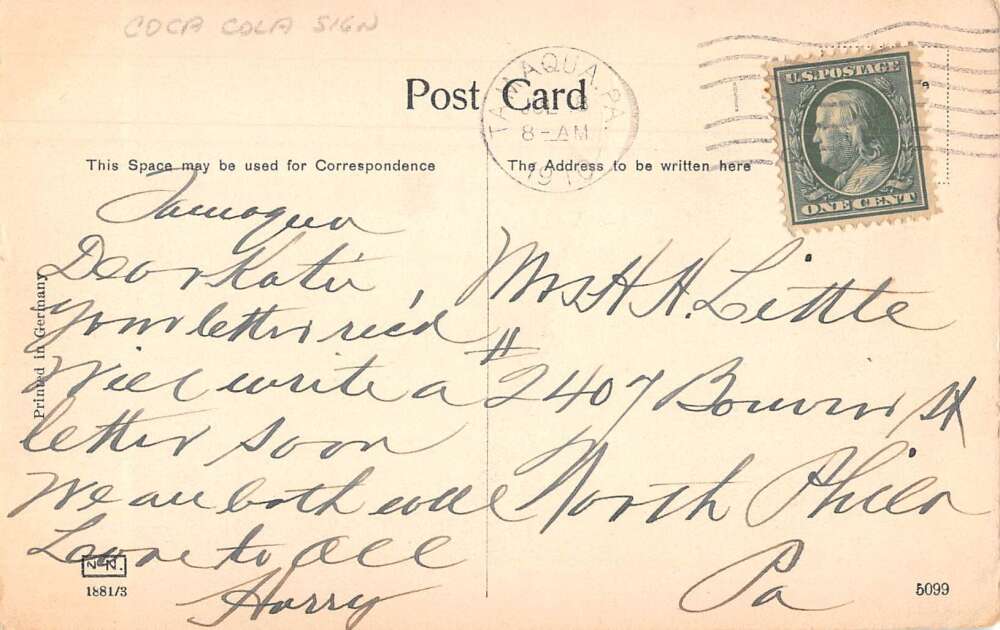 COCA COLA SIGN
Post Card
TAMAQUA, PA.
8-AM
1910
U.S. POSTAGE
ONE CENT
This Space may be used for Correspondence
The Address to be written here
Tamaqua
Dear Katie,
Your letter rec'd
Will write a
letter soon
We are both well
Love to all
Harry
Mrs H. H. Little
# 2407 Bouvier St
North Phila
Pa
Printed in Germany
1881/3
5099